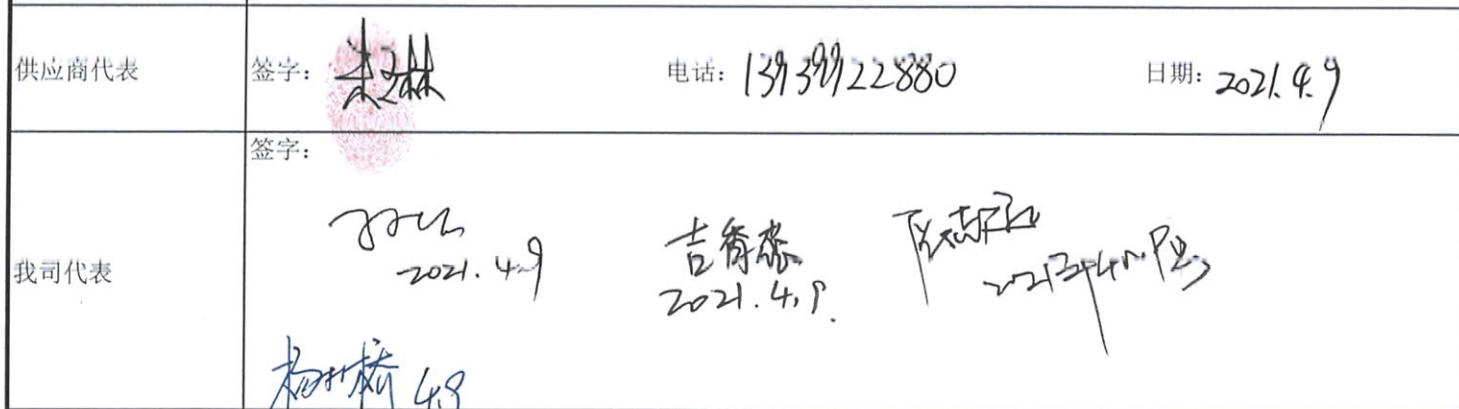 供应商代表 签字： 电话：13939922880 日期：2021.4.9
签字：
我司代表
2021.4.9 吉香 2021.4.9. 2021年4月9日
杨 桥 4.9